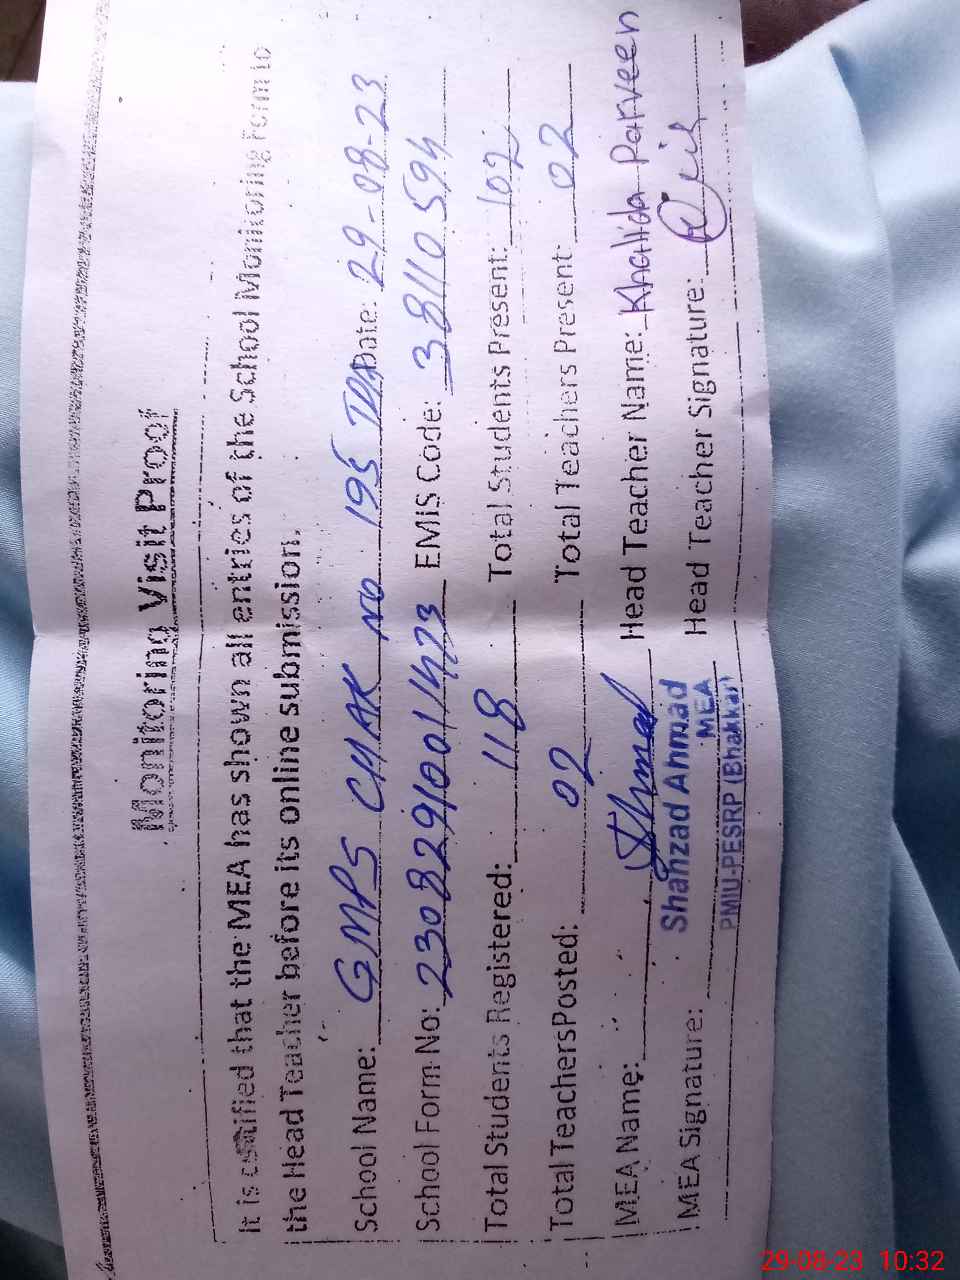 Monitoring Visit Proof
It is certified that the MEA has shown all entries of the School Monitoring Form to
the Head Teacher before its online submission.
School Name: GMPS CHAK NO 195 TDA Date: 29-08-23
School Form No: 230829/001/1423 EMIS Code: 38110594
Total Students Registered: 118 Total Students Present: 102
Total Teachers Posted: 02 Total Teachers Present: 02
MEA Name: Head Teacher Name: Khalida Parveen
Shahzad Ahmad
MEA
PMIU-PESRP (Bhakkar)
MEA Signature: Head Teacher Signature:
29-08-23 10:32